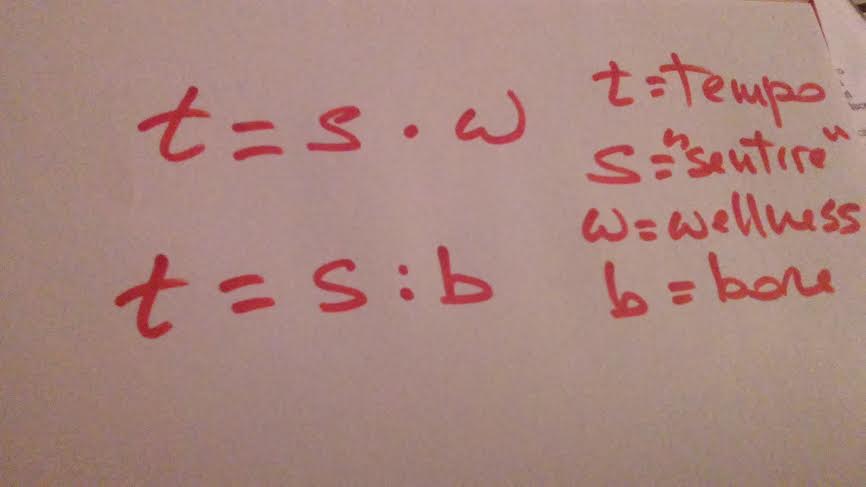 t = s · w
t = s : b
t = tempo
s = "sentire"
w = wellness
b = bore